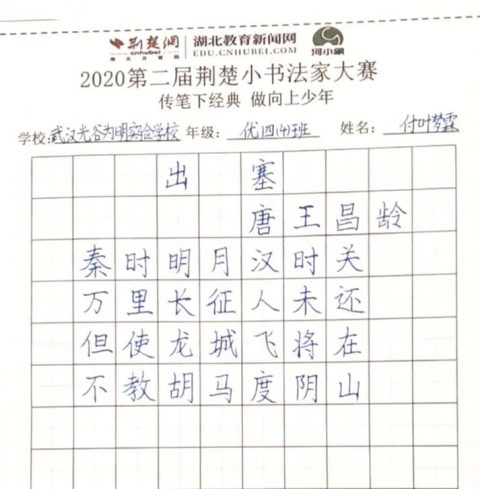 荆楚网 湖北教育新闻网
cnhubei EDU.CNHUBEI.COM 河小象
湖北日报网
2020第二届荆楚小书法家大赛
传笔下经典 做向上少年
学校:武汉光谷为明实验学校 年级: 优四(4)班 姓名: 付叶梦霖
出 塞
唐 王昌龄
秦时明月汉时关
万里长征人未还
但使龙城飞将在
不教胡马度阴山